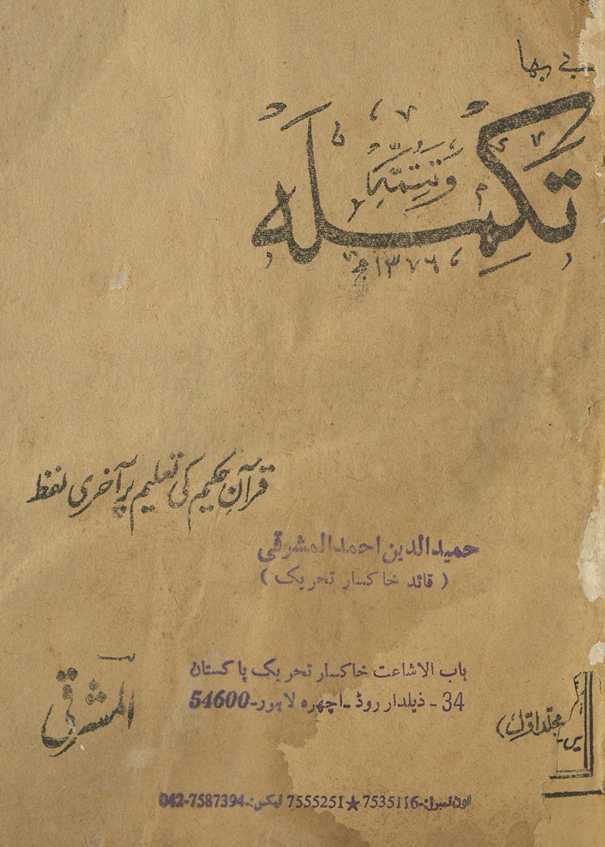 بے بہا
تکملہ
وتتمّہ
۱۳۷۶ھ
قرآنِ حکیم کی تعلیم پر آخری لفظ
حمیدالدین احمدالمشرقی
( قائد خاکسار تحریک )
باب الاشاعت خاکسار تحریک پاکستان
34 - ذیلدار روڈ - اچھرہ لاہور-54600
المشرقی
(مجلد اوّل)
فون نمبرز:-7535116★7555251 فیکس:-042-7587394